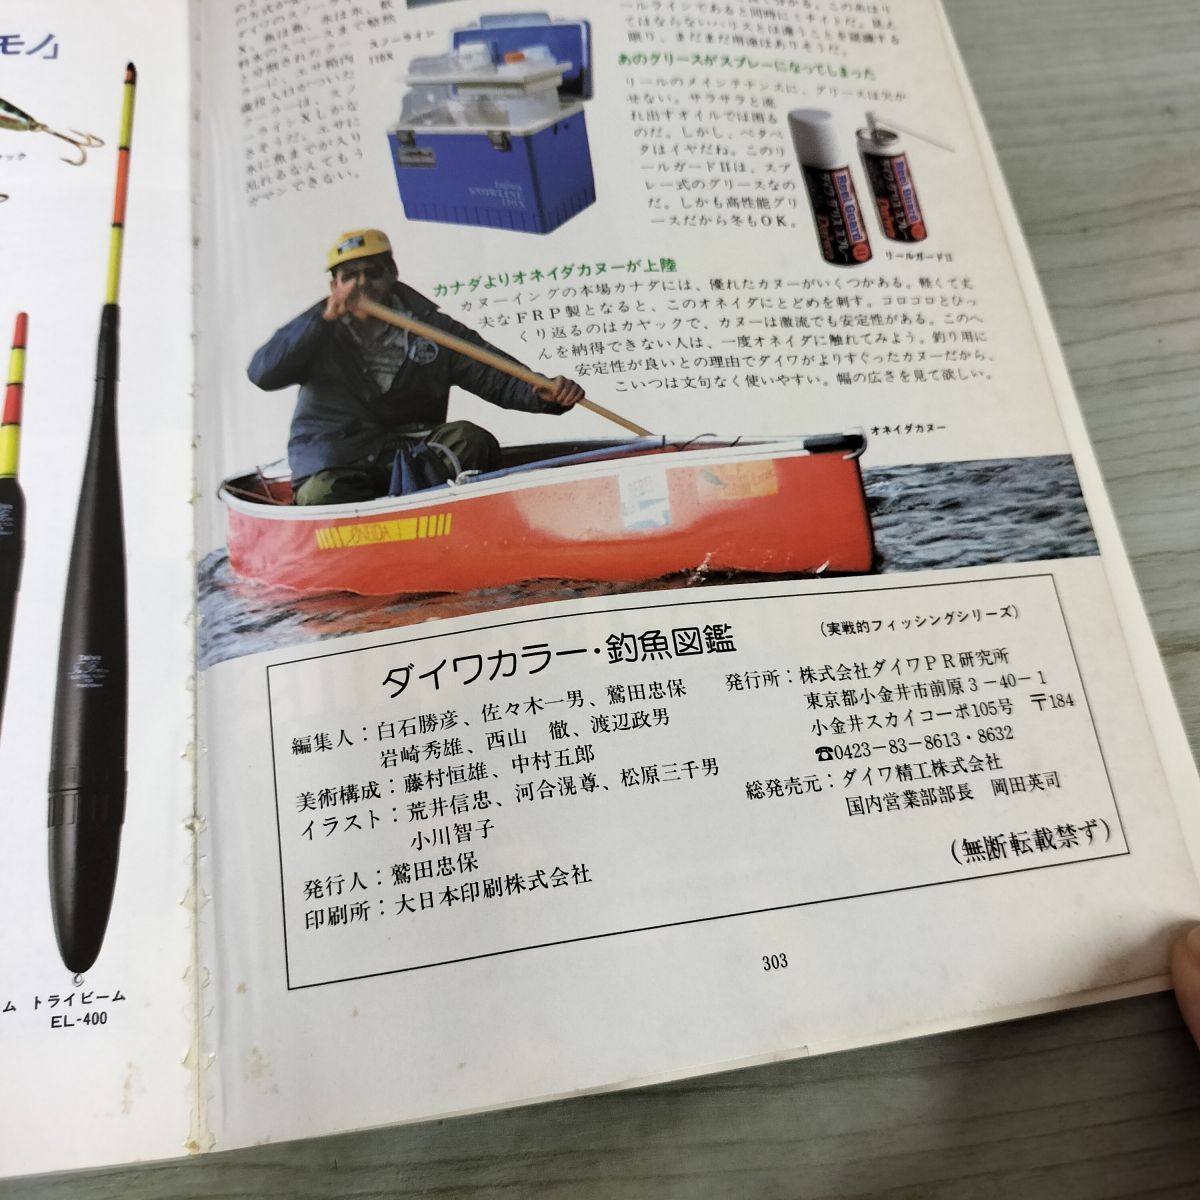 モノ」
トライビーム
EL-400
料氷のスペースまで整然
と分割されたクー
ラーに、エサ箱内
蔵投入口がついた
クーラーは、スノ
ーラインXしかな
さそうだ。エサに
氷に魚までが入り
乱れるなんてもう
ガマンできない。
スノーライン
118X
Daiwa
SNOWLINE
118X
ールラインであると同時にミチイトだ。見え
てはならないハリスとは違うことを認識する
限り、まだまだ用途はありそうだ。
あのグリースがスプレーになってしまった
リールのメインテナンスに、グリースは欠か
せない。サラサラと流
れ出すオイルでは困る
のだ。しかし、ベタベ
タはイヤだね。このリ
ールガードIIは、スプ
レー式のグリースなの
だ。しかも高性能グリ
ースだから冬もOK。
Reel Guard
Reel Guard
リールガードII
カナダよりオネイダカヌーが上陸
カヌーイングの本場カナダには、優れたカヌーがいくつかある。軽くて丈
夫なFRP製となると、このオネイダにとどめを刺す。コロコロとひっ
くり返るのはカヤックで、カヌーは激流でも安定性がある。このへ
んを納得できない人は、一度オネイダに触れてみよう。釣り用に
安定性が良いとの理由でダイワがよりすぐったカヌーだから、
こいつは文句なく使いやすい。幅の広さを見て欲しい。
オネイダカヌー
ONEIDA I
ダイワカラー・釣魚図鑑
(実戦的フィッシングシリーズ)
編集人：白石勝彦、佐々木一男、鷲田忠保
岩崎秀雄、西山　徹、渡辺政男
美術構成：藤村恒雄、中村五郎
イラスト：荒井信忠、河合滉尊、松原三千男
小川智子
発行人：鷲田忠保
印刷所：大日本印刷株式会社
発行所：株式会社ダイワＰＲ研究所
東京都小金井市前原３−40−１
小金井スカイコーポ105号　〒184
☎0423−83−8613・8632
総発売元：ダイワ精工株式会社
国内営業部部長　岡田英司
(無断転載禁ず)
303